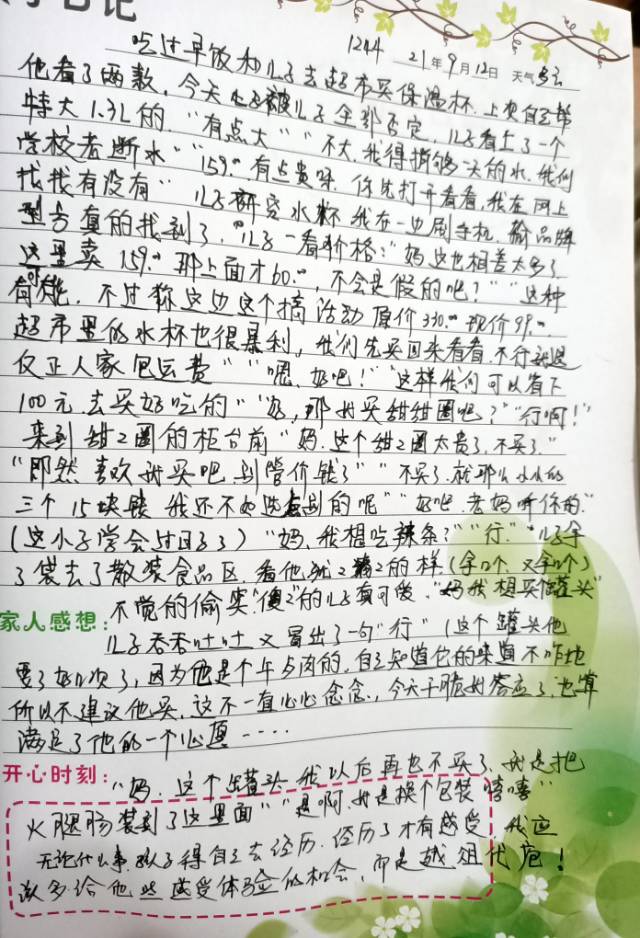 1244 21年9月12日 天气多云
吃过早饭和儿子去超市买保温杯.上次自己帮
他看了两款,今天被儿子全部否定,儿子看上了一个
特大1.3L的."有点大""不大.我得搞够一天的水.我们
学校老断水""159.°°有点贵味.你先打开看看.我在网上
找找有没有"儿子研究水杯.我在一边刷手机.输品牌
型号真的找到了."儿子一看价格:"妈这也相差太多了
这里卖159.°°那上面才60.°°,不会是假的吧?""这种
可能,不过称这边这个搞活动原价330.°°现价99.°°
超市里的水杯也很暴利,我们先买回来看看.不行就退
仅正人家包运费""嗯.好吧!""这样我们可以省下
100元.去买好吃的""好,那我买甜甜圈吧?""行啊!"
来到甜之圈的柜台前"妈.这个甜之圈太贵了,不买了."
"即然喜欢就买吧.别管价钱了""不买了.就那么小小的
三个15块钱.我还不如选别的呢""好吧.老妈听你的."
(这小子学会过日子了)"妈,我想吃辣条?""行."儿子拿
了袋去了散装食品区.看他犹之豫之的样(拿几个.又拿几个)
不觉的偷笑"傻之"的儿子真可爱."妈我想买罐头"
家人感想:
儿子吞吞吐吐又冒出了一句"行"(这个罐头他
要了好几次了,因为他是个午歺肉的,自己知道它的味道不咋地
所以不建议他买,这不一直心心念念,今天干脆就答应了.也算
满足了他的一个心愿····
开心时刻:
"妈.这个罐头我以后再也不买了.就是把
火腿肠装到了这里面""是啊.就是换个包装嘻嘻"
无论什么事.孩子得自己去经历.经历了才有感受.我应
该多给他些感受体验的机会,而是越俎代庖!